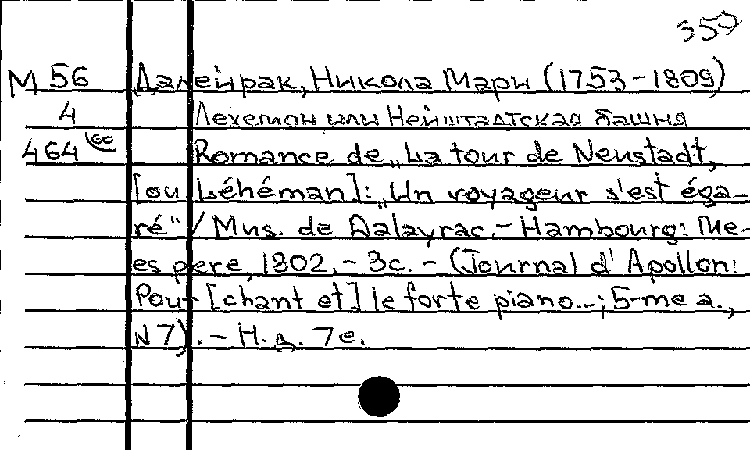 359
М 56 Далейрак, Никола Мари (1753-1809)
4 Лехеман или Нейштадтская башня
464 Romance de „La tour de Neustadt,
[ou Léhéman]: „Un voyageur s'est éga-
ré" / Mus. de Dalayrac.- Hambourg: Me-
es pere, 1802. - 3с. - (Journal d'Apollon:
Pour [chant et] le forte piano..; 5-me a.,
N 7). - Н.д. 7е.